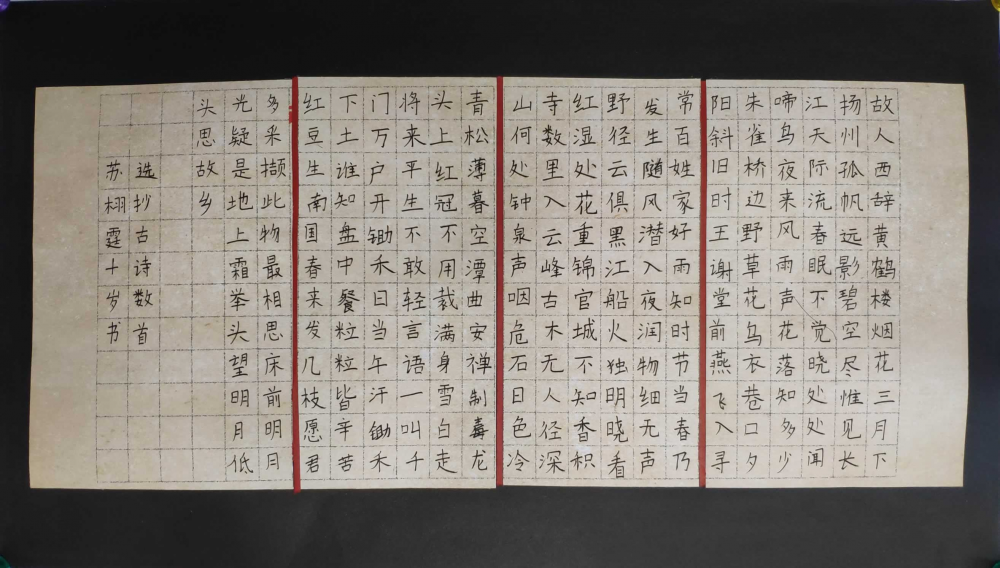 故人西辞黄鹤楼烟花三月下
扬州孤帆远影碧空尽惟见长
江天际流春眠不觉晓处处闻
啼鸟夜来风雨声花落知多少
朱雀桥边野草花乌衣巷口夕
阳斜旧时王谢堂前燕飞入寻
常百姓家好雨知时节当春乃
发生随风潜入夜润物细无声
野径云俱黑江船火独明晓看
红湿处花重锦官城不知香积
寺数里入云峰古木无人径深
山何处钟泉声咽危石日色冷
青松薄暮空潭曲安禅制毒龙
头上红冠不用裁满身雪白走
将来平生不敢轻言语一叫千
门万户开锄禾日当午汗锄禾
下土谁知盘中餐粒粒皆辛苦
红豆生南国春来发几枝愿君
多采撷此物最相思床前明月
光疑是地上霜举头望明月低
头思故乡
选抄古诗数首
苏栩霆十岁书